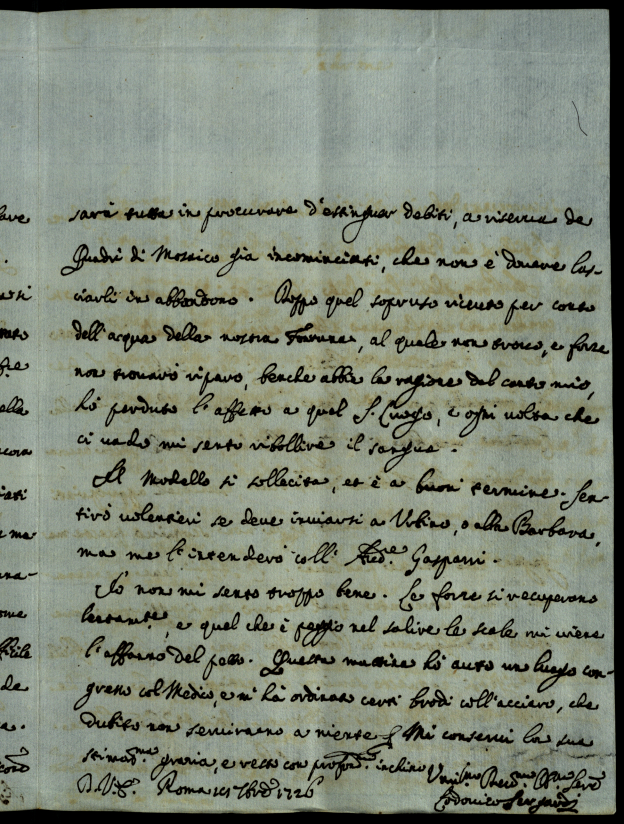 sarà tutta in procurare d'estinguer debiti, a riserva de
Quadri di Mosaico già incominciati, che non è dovere las-
ciarli in abbandono. Doppo quel sopruso ricevuto per conto
dell'acqua della nostra Fontana, al quale non trovo, e forse
non troverò riparo, benche abbia la ragione dal canto mio,
hò perduto l'affetto a quel S. Luogo, e ogni volta che
ci vado mi sento ribollire il sangue.
Il Modello si sollecita, et è a buon termine. Sen-
tirò volentieri se deve inviarsi a Urbino, o alla Barbara,
ma me l'intenderò coll' Gasparri.
Io non mi sento troppo bene. Le forze si recuperano
lentamte, e quel che è peggio nel salire le scale mi viene
l'affanno del petto. Questa mattina hò auto un lungo con-
gresso col Medico, e mi hà ordinato certi brodi coll'acciaro, che
dubito non serviranno a niente. Mi conservi la sua
stimadma grazia, e resto con profonmo inchino
D. V. E. Roma 7bre 1726
Lodovico Sergardi